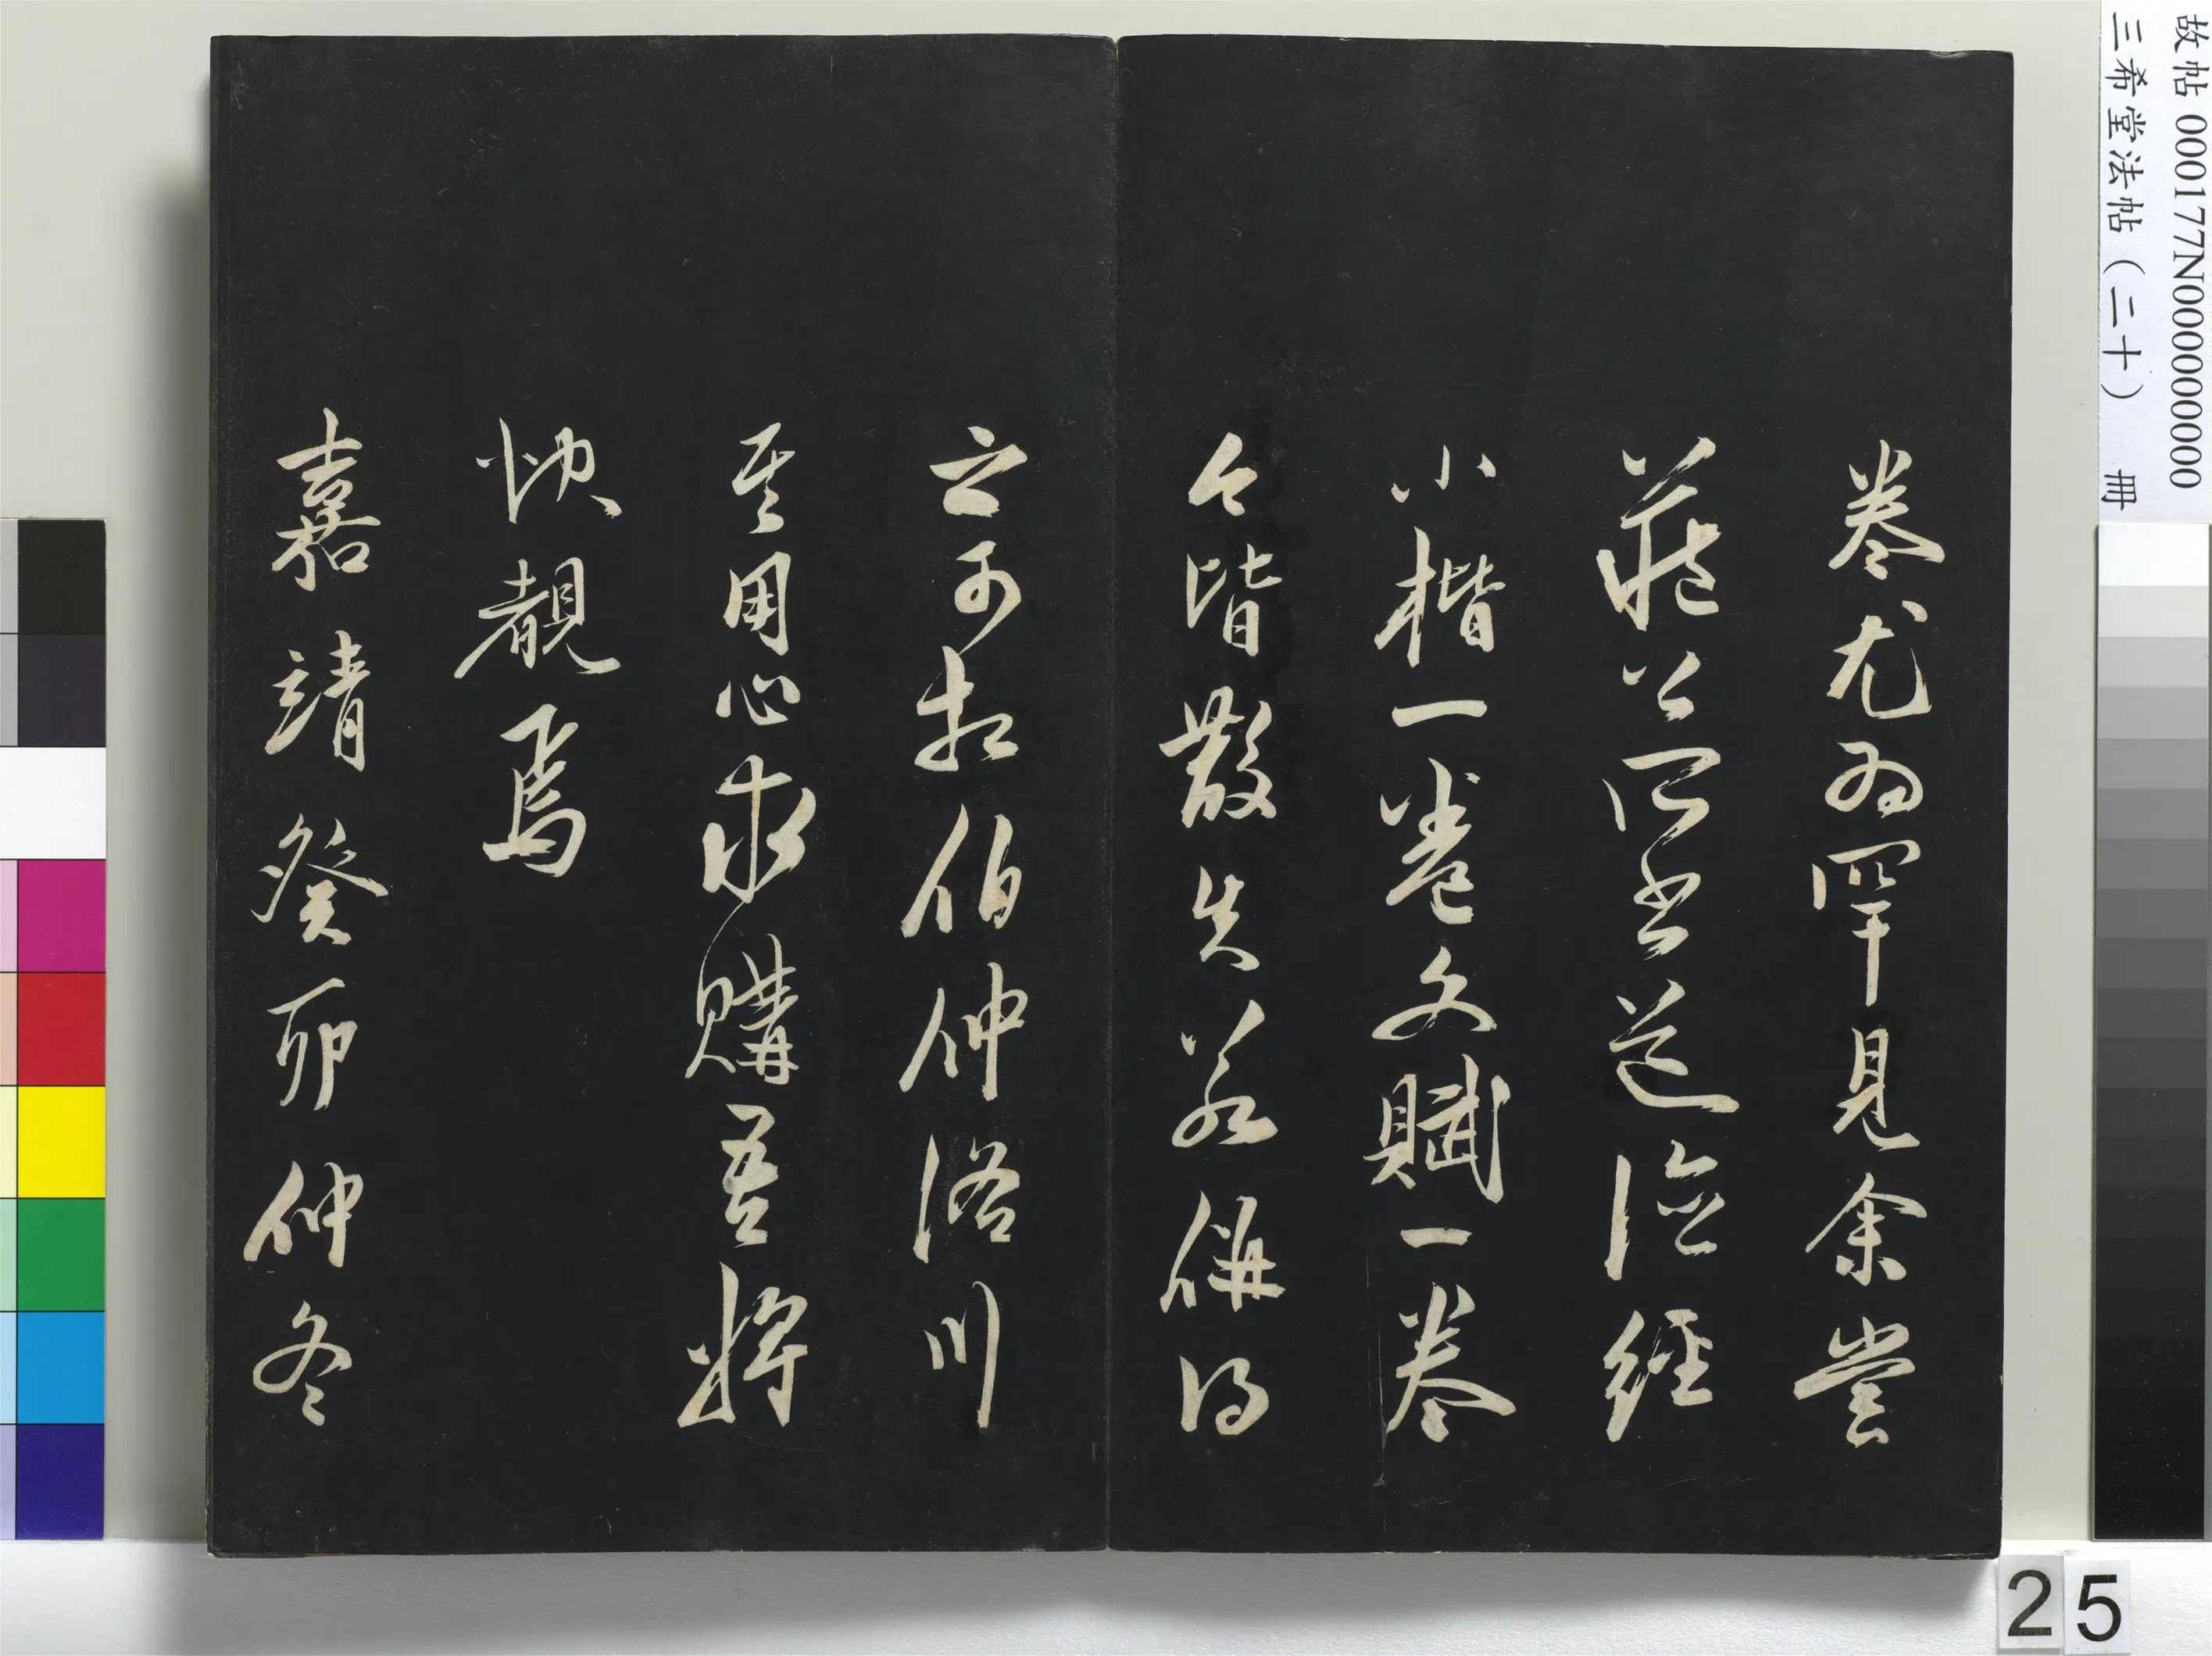 故帖 000177N000000000
三希堂法帖（二十） 冊
卷尤為罕見余嘗
藏公所書道德經
小楷一卷文賦一卷
今皆散失若併得
之可相伯仲洛川
其用心求購吾將
快覩焉
嘉靖癸卯仲冬
25